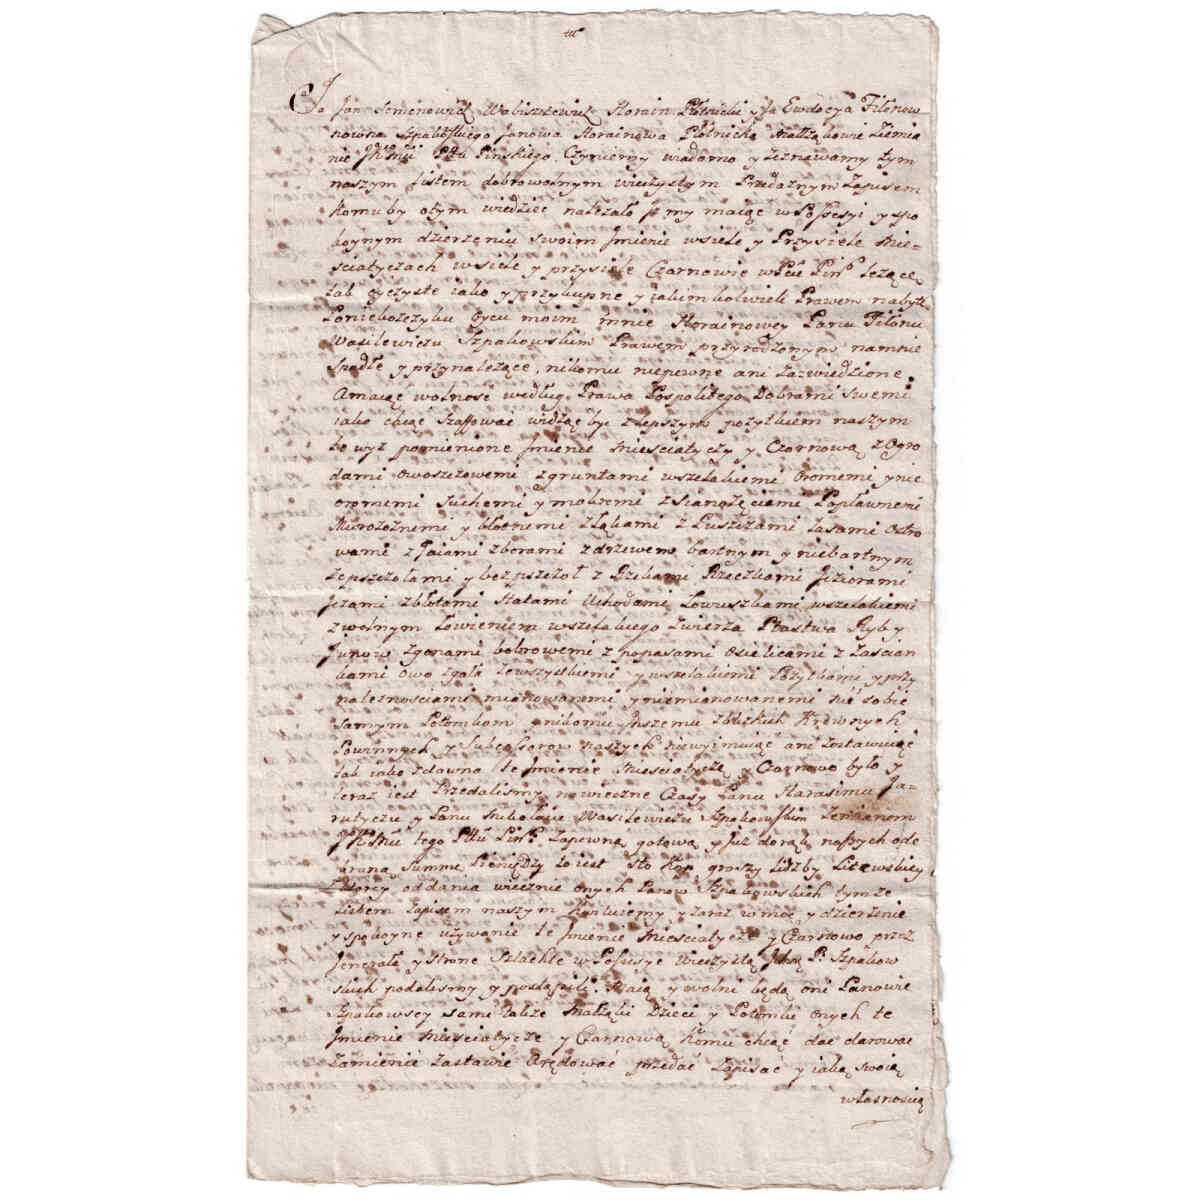 Ja Jan Semenowicz Wabiszczewicz Horain Płotnicki y ja Ewdocya Filonow
nowna Szpakowskiego Janowa Horainowa Płotnicka Małżąkowie Ziemia
nie JKMci Pttu Pinskiego. Czyniemy wiadomo y zeznawamy tym
naszym Listem dobrowolnym wieczystym Przedażnym Zapisem
komuby otym wiedzieć należało iż my maiąc w Possesyi y spo
koynym dzierżeniu swoim Jmienie wsiele y Przysiele Mie=
sciatyczach w siele y przysiele Czarnowie w Ptcie Pinso Leżącę
tak oyczyste iako y przykupne y iakimkolwiek Prawem nabyte
Poniebożczyku Oycu moim mnie Horainowey Panu Filonu
Wasilewiczu Szpakowskim Prawem przyrodzonym namnie
Spadłe y przynależące, nikomu niepewne ani zawiedzione.
A maiąc wolność według Prawa Pospolitego Dobrami Swemi
iako chcąc Szaffować widząc być zlepszym pożytkiem naszym
to wyż pomienione Jmienie Miesciatyczy y Czornową z Ogro
dami Owoszczowemi zgruntami wszelakiemi Oromemi y nie
oromemi suchemi y mokremi z sianożęciemi Popławnemi
Murożnemi y błotnemi z Łąkami z Puszczami Lasami Ostro
wami z Gaiami zborami zdrzewem bartnym y niebartnym
zepszczołami y bez pszczoł z Rzekami Rzeczkami Jeziorami
Jezami zbłotami Stawami Uchodami Łowuszkami wszelakiemi
z wolnym Łowieniem wszelakiego Zwierza Ptastwa Ryby
Junow zgonami bobrowemi z popasami Osielicami z Zascian
kami Owo zgoła zewszystkiemi y wszelakiemi Pożytkami y przy
należnosciami mianowanemi y niemianowanemi nic sobie
samym Potomkom y nikomu Jnszemu zbliskich Krewnych
Powinnych y Subcessorow naszych niewyimuiąc ani zostawuiąc
tak iako zdawna te Jmienie Miesciatycze y Czarnowo było y
teraz iest Przedalismy na wieczne Czasy Panu Harasimu Ja=
rutyczu y Panu Mikołaiu Wasilewiczu Szpakowskim Ziemianom
JKMci tego Pttu Pinso Zapewną gotową y Już dorąk naszych ode
braną Summę Pieniędzy to iest Sto Kop groszy Liczby Litewskiey
oddania wiecznie onych Panow Szpakowskich tymże
Listem Zapisem naszym kwituiemy y zaraz w moc y dzierżenie
y spokoyne używanie te Jmienie Miesciatycze y Czarnowo przez
Jenerała y stronę Szlachtę w Possesyę wieczystą Jchm P: Szpakow
skich podalismy y postąpili. Maią y wolni będą oni Panowie
Szpakowscy sami także Małżąki Dzieci y Potomki onych te
Jmienie Miesciatycze y Czarnową komu chcąć dać darować
Zamienić Zastawić Arędować przedać Zapisać y iako swoią
własnoscią